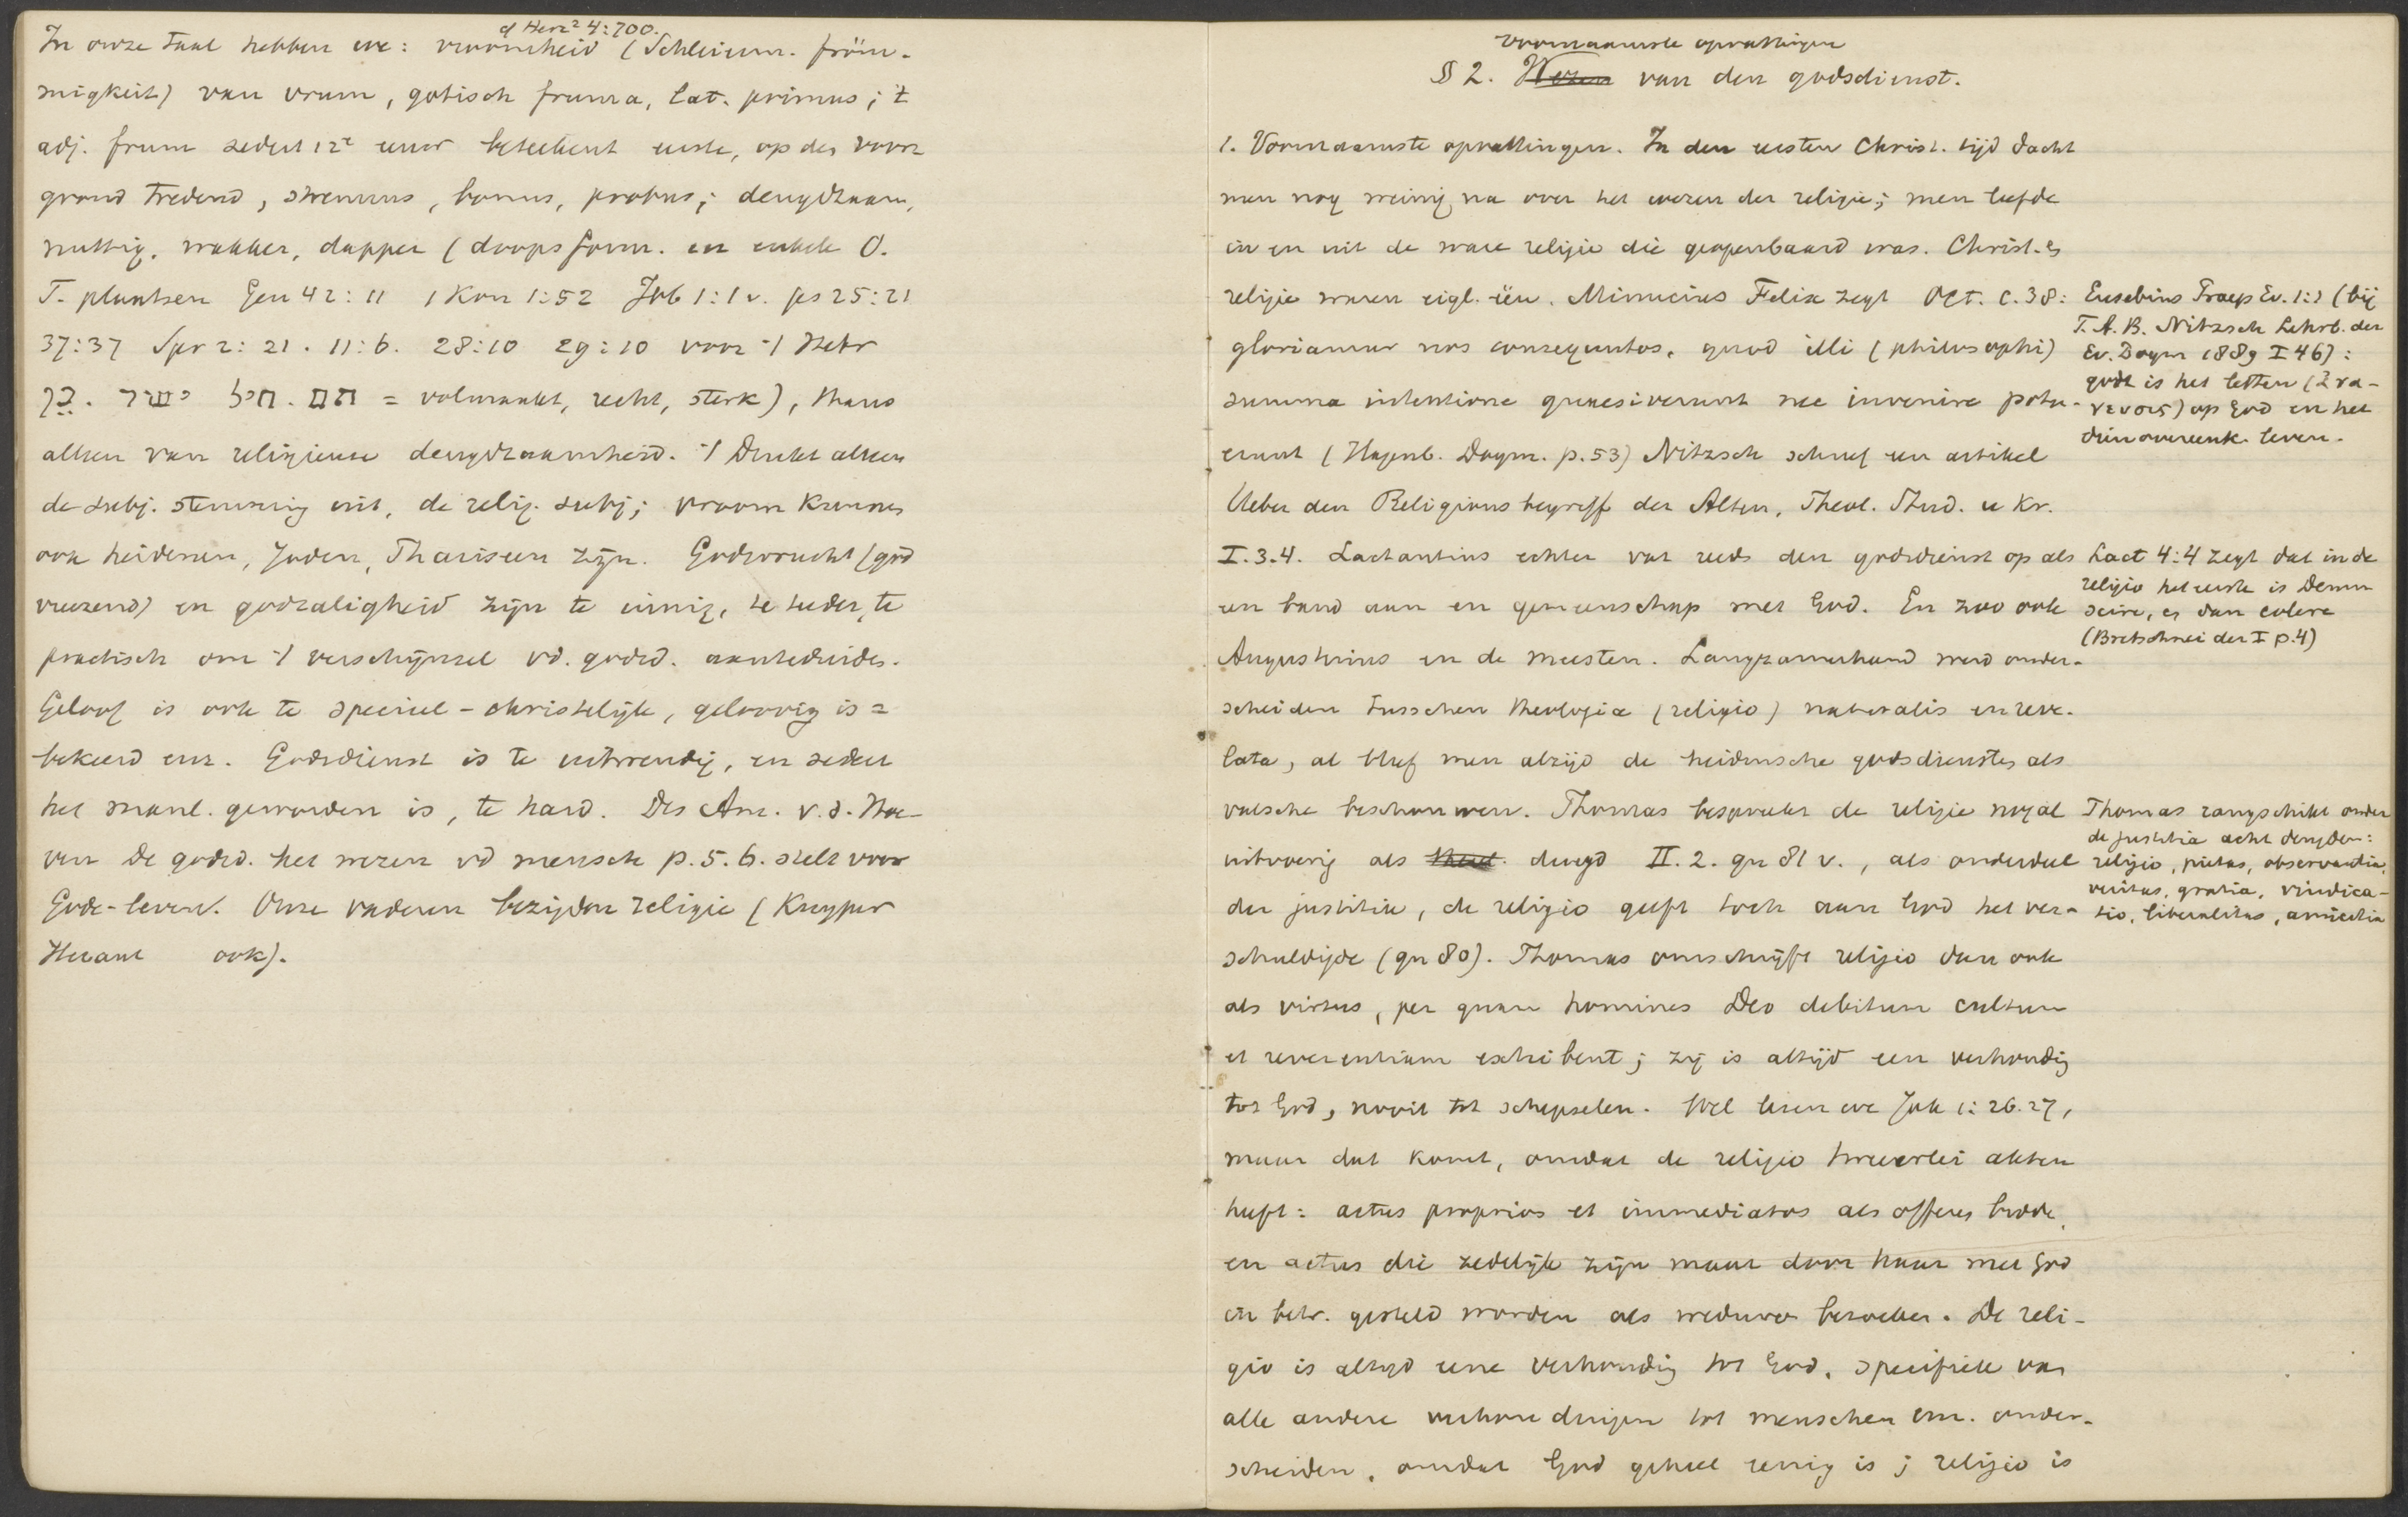 cf Herz² 4:700.
In onze taal hebben we: vroomheid (Schleierm. fröm-
migkeit) van vrum, gotisch fruma, lat. primus; 't
adj. frum sedert 12e eeuw beteekent eerste, op den voor
grond tredend, strenuus, bonus, probus; deugdzaam,
nuttig, wakker, dapper (doopsform. en enkele O.
T. plaatsen Gen 42:11 1 Kon 1:52 Job 1:1 v. ps 25:21
37:37 Spr 2:21. 11:6. 28:10 29:10 voor 't Hebr
כן. ישר חיל. תם = volmaakt, recht, sterk), thans
alleen van religieuse deugdzaamheid. 't Drukt alleen
de subj. stemming uit, de relig. subj; vroom kunnen
ook heidenen, Joden, Phariseen zijn. Godsvrucht (god
vreezend) en godzaligheid zijn te innig, te teeder, te
practisch om 't verschijnsel vd. godsd. aanteduiden.
Geloof is ook te speciael-christelijk, geloovig is =
bekeerd enz. Godsdienst is te uitwendig, en sedert
het manl. geworden is, te hard. Ds Am. v.d. Hoe-
ven De godsd. het wezen vd mensch p. 5. 6. stelt voor
Gode-leven. Onze vaderen bezigden religie (Kuyper
Heraut ook).
voornaamste opvattingen
§ 2. Wezen van den godsdienst.
1. Voornaamste opvattingen. In den eersten Christ. tijd dacht
men nog weinig na over het wezen der religie; men leefde
in en uit de ware religie die geopenbaard was. Christ. en
religie waren eigl. één. Minucius Felix zegt Oct. c. 38:
gloriamur nos consequutos, quod illi (philosophi)
summa intentione quaesiverunt nec invenire potu-
erunt (Hagenb. Dogm. p. 53) Nitzsch schreef een artikel
Ueber den Religionsbegriff der Alten, Theol. Stud. u Kr.
I. 3. 4. Lactantius echter vat reeds den godsdienst op als
een band aan en gemeenschap met God. En zoo ook
Augustinus en de meesten. Langzamerhand werd onder-
scheiden tusschen theologia (religio) naturalis en reve-
lata, al bleef men altijd de heidensche godsdiensten als
valsche beschouwen. Thomas bespreekt de religie nogal
uitvoerig als deugd II. 2. qu 81 v., als onderdeel
der justitia, de religio geeft toch aan God het ver-
schuldigde (qu 80). Thomas omschrijft religio dan ook
als virtus, per quam homines Deo debitum cultum
et reverentiam exhibent; zij is altijd een verhouding
tot God, nooit tot schepselen. Wel lezen we Jak 1:26.27,
maar dat komt, omdat de religio tweeerlei akten
heeft: actus proprios et immediatos als offeren bidden,
en actus die zedelijk zijn maar door haar met God
in betr. gesteld worden als weduwen bezoeken. De reli-
gio is altijd eene verhouding tot God, specifiek van
alle andere verhoudingen tot menschen enz. onder-
scheiden, omdat God geheel eenig is; religio is
Eusebius Praep Ev. 1:1 (bij
F. A. B. Nitzsch Lehrb. der
Ev. Dogm 1889 I 46):
godsd is het letten (ἀνα-
νευσις) op God en het
dien overeenk. leven.
Lact 4:4 zegt dat in de
religio het eerste is Deum
scire, en dan colere
(Bretschneider I p. 4)
Thomas rangschikt onder
de justitia acht deugden:
religio, pietas, observantia,
veritas, gratia, vindica-
tio, liberalitas, amicitia